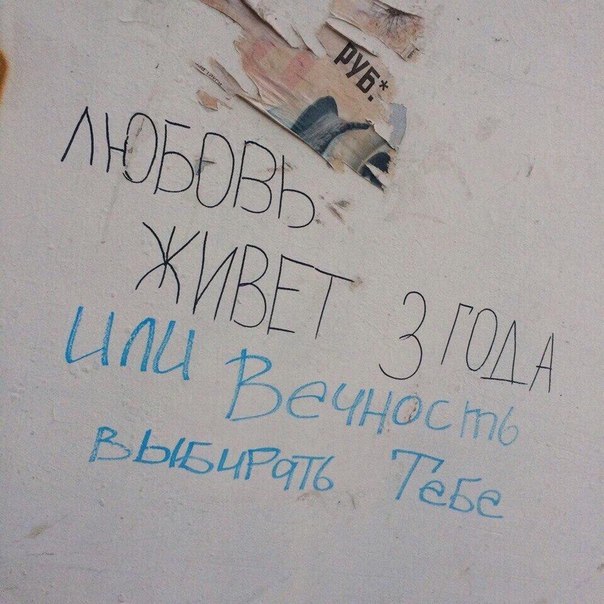 РУБ.*
ЛЮБОВЬ
ЖИВЕТ 3 ГОДА
или Вечность
выбирать Тебе